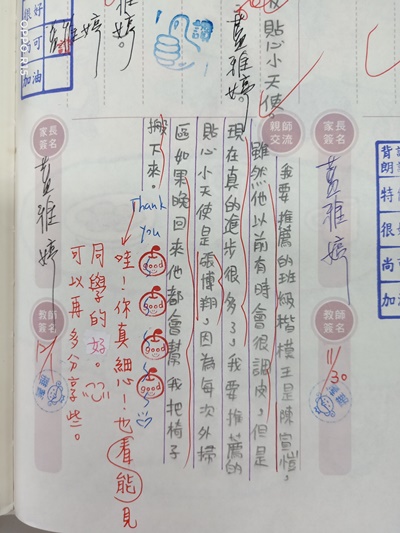 貼心小天使。
藍雅婷。
雅婷。
婷。
讚
可
加油
家長
簽名
藍雅婷
親師
交流
我要推薦的班級楷模王是陳宣愷，
雖然他以前有時會很調皮，但是
現在真的進步很多了，我要推薦的
貼心小天使是張博翔，因為每次外掃
區如果晚回來他都會幫我把椅子
搬下來。
Thank
you
good
good
good
good
哇！你真細心！也看能見
同學的好。
可以再多分享些。
家長
簽名
藍雅婷
教師
簽名
11/30
教師
簽名
背
朗
特
很
尚
加